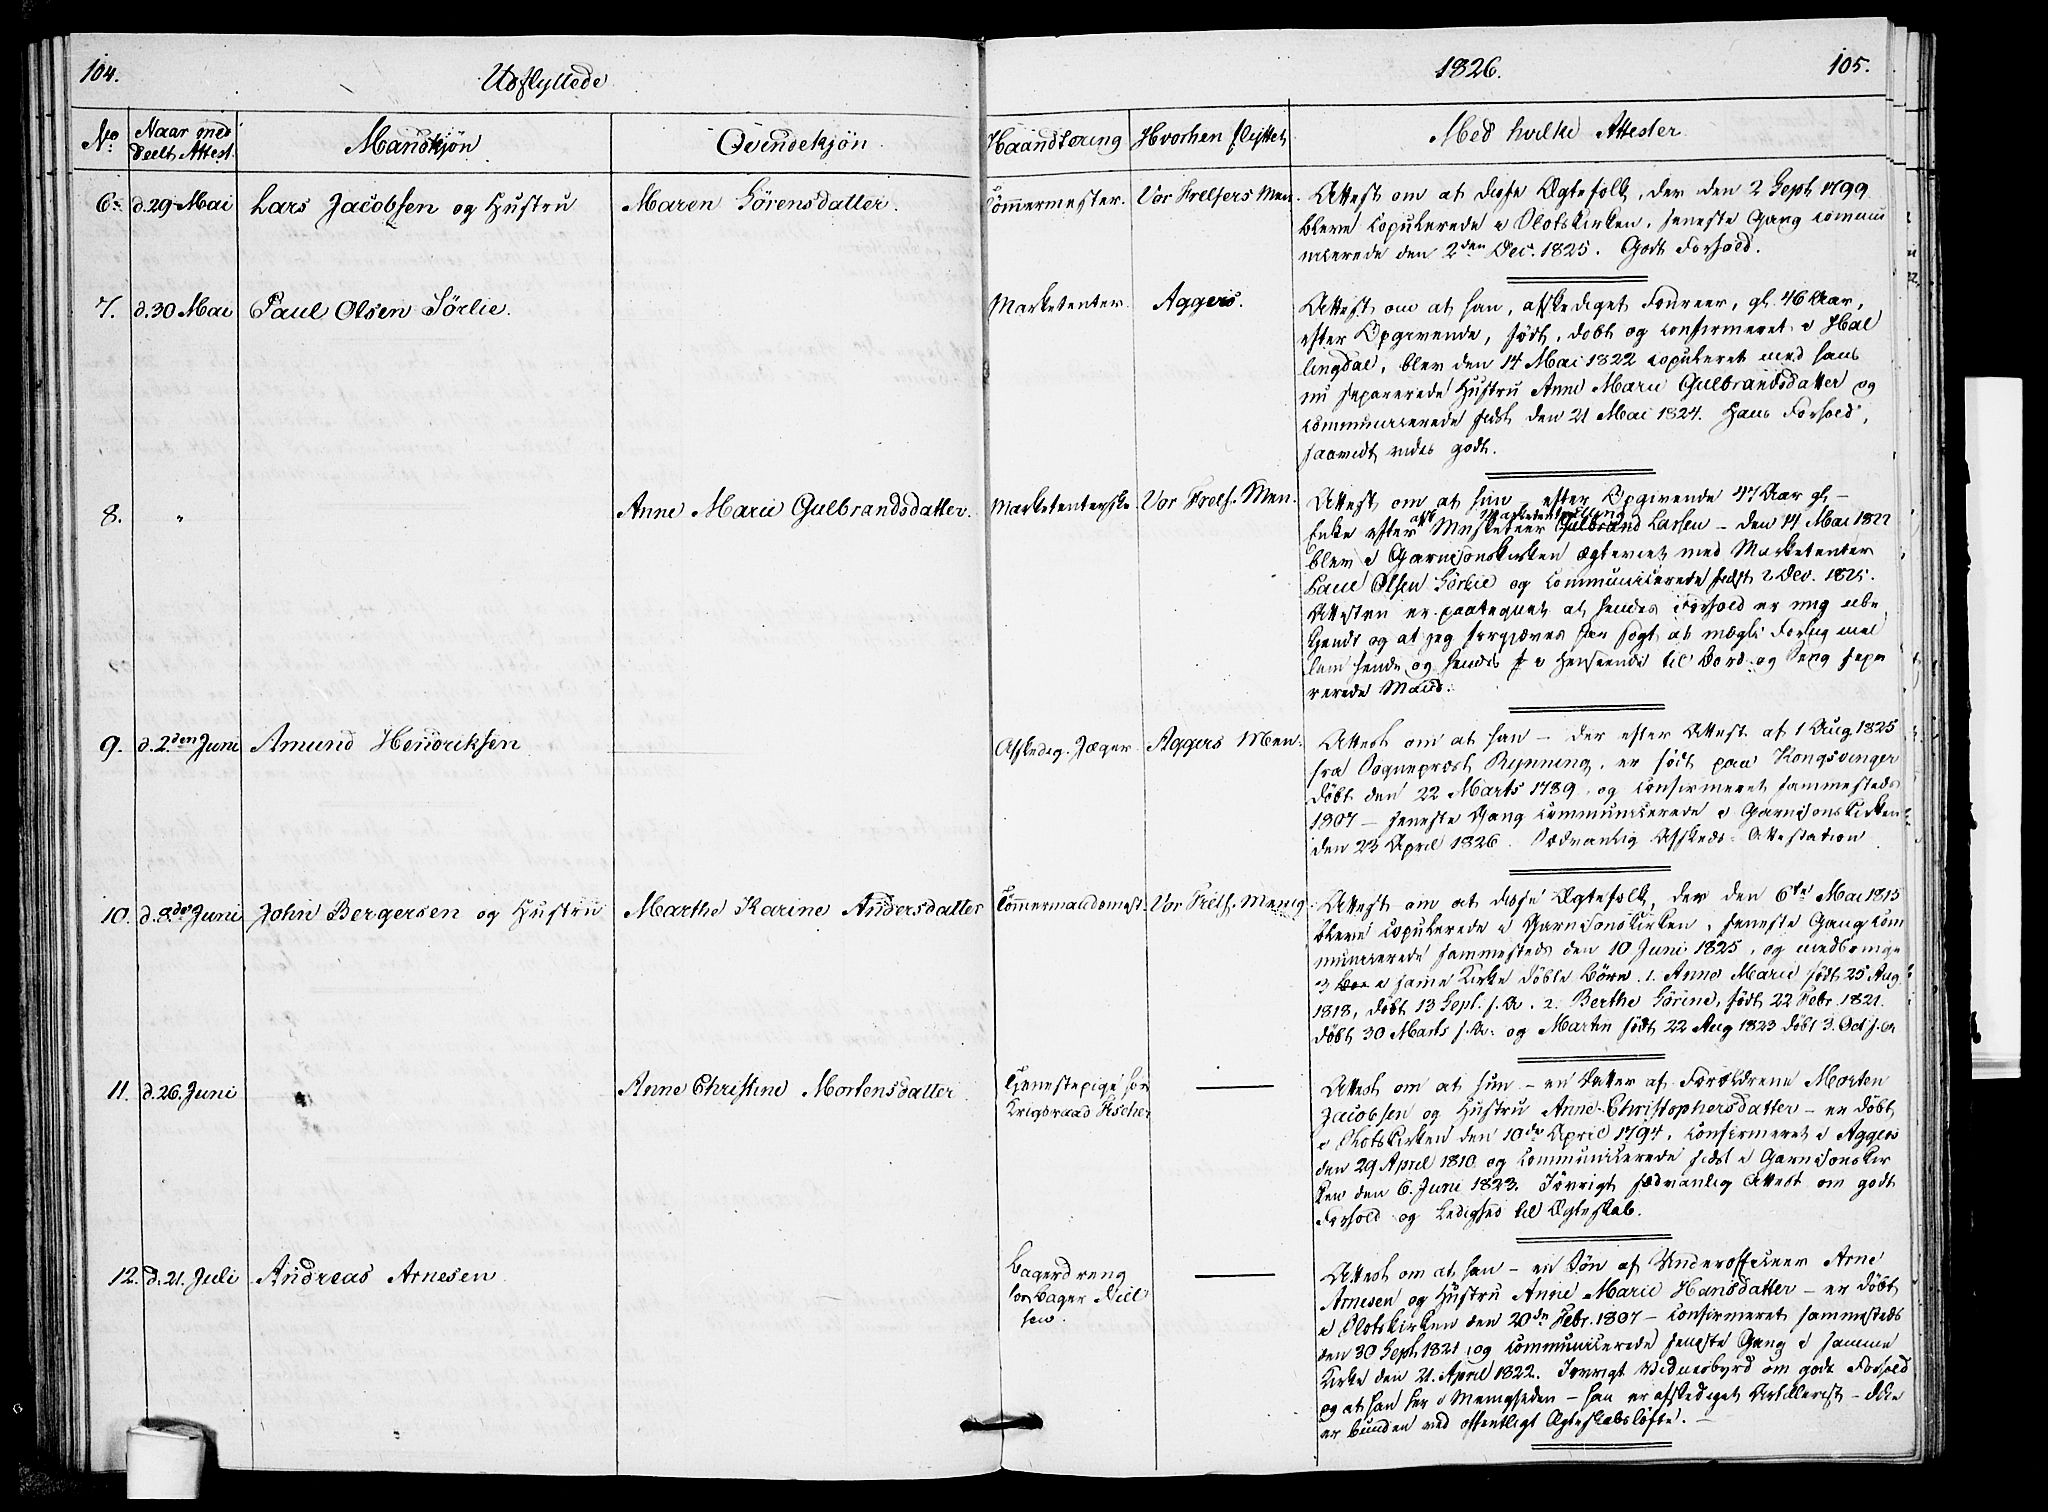 104.
Udflyttede
1826.
105.
No
Naar med
deelt Attest.
Mandkjøn
Qvindekjøn
Haandtering
Hvorhen flyttet
Med hvilke Attester
6.
d. 29 Mai
Lars Jacobsen og Hustru
Maren Sörensdatter.
Tömmermester.
Vor Frelsers Men.
Attest om at disse Ægtefolk, der den 2 Sept 1799
bleve copulerede i Slotskirken, seneste Gang commu
nicerede den 2den Dec. 1825. Godt Forhold.
7.
d. 30 Mai
Paul Olsen Sörlie.
Marketenter.
Aggers.
Attest om at han, afskediget Foureer, gl. 46 Aar,
efter Opgivende, født, döbt og confirmeret i Hal
lingdal, blev den 14 Mai 1822 copuleret med hans
nu separerede Hustru Anne Marie Gulbrandsdatter og
communicerede sidst den 21 Mai 1824. Hans Forhold,
saavidt vides godt.
8.
"
Anne Marie Gulbrandsdatter.
Marketenterske
Vor Frels. Men.
Attest om at hun – efter Opgivende 47 Aar gl –
Enke efter afsk Musketeer Gulbrand Larsen – den 14 Mai 1822
blev i Garnisonskirken ægteviet med Marketenter
Paul Olsen Sörlie og communicerede sidst 2 Dec. 1825.
Attesten er paategnet at hendes Forhold er mig ube
kjendt og at jeg forgjæves har søgt at mægle Forlig mel
lem hende og hendes i Henseende til Bord og Seng sepa
rerede Mand.
9.
d. 2den Juni
Amund Hendriksen
Afskedig. Jæger
Aggers Men.
Attest om at han – der efter Attest af 1 Aug 1825
fra Sogneprest Rynning, er født paa Kongsvinger
döbt den 22 Marts 1789, og confirmeret sammesteds
1807 – seneste Gang communicerede i Garnisonskirken
den 23 April 1826. Sædvanlig Afskeds-Attestation
10.
d. 8de Juni
John Bergersen og Hustru
Marthe Karine Andersdatter
Tömmermandsmest.
Vor Frels. Menig.
Attest om at disse Ægtefolk, der den 6te Mai 1815
bleve copulerede i Garnisonskirken, seneste Gang com
municerede sammesteds den 10 Juni 1825, og medbringe
3 i same Kirke döbte Börn. 1. Anne Marie født 25 Aug
1818, döbt 13 Sept. s. A. 2. Berthe Sörine, født 22 Febr. 1821.
döbt 30 Marts s. A. og Martin født 22 Aug 1823 döbt 3. Oct s. A
11.
d. 26. Juni
Anne Christine Mortensdatter.
Tjenestepige hos
Krigsraad Fischer
—
Attest om at hun – en Datter af Forældrene Morten
Jacobsen og Hustru Anne Christophersdatter – er döbt
i Slotskirken den 10de April 1794, confirmeret i Aggers
den 29 April 1810 og communicerede sidst i Garnisonskir
ken den 6. Juni 1823. Iövrigt sædvanlig Attest om godt
Forhold og Ledighed til Ægteskab.
12.
d. 21. Juli
Andreas Arnesen
Bagerdreng
hos Bager Niel
sen.
—
Attest om at han – en Sön af Underofficeer Arne
Arnesen og Hustru Anne Marie Hansdatter – er döbt
i Slotskirken den 20de Febr. 1807 – confirmeret sammesteds
den 30 Sept 1821 og communicerede seneste Gang i samme
Kirke den 21. April 1822. Iövrigt Vidnesbyrd om godt Forhold
og at han her i Menigheden – han er afskediget Artillerist – ikke
er bunden ved offentligt Ægteskabslöfte. –